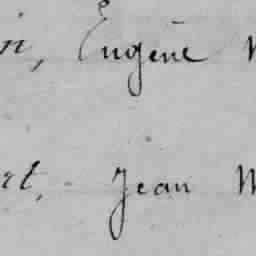 in, Eugène
et, Jean M